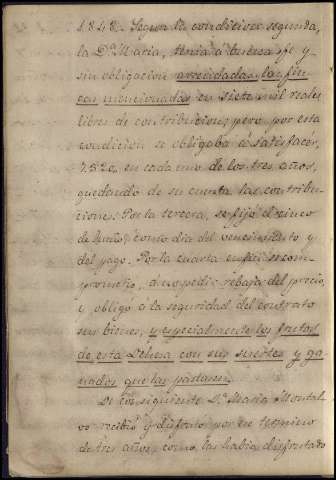 1848. Segun la condicion segunda,
la D.ª Maria, tenia a buena fe y
sin obligacion arrendadas las fin
cas mencionadas en siete mil reales
libres de contribuciones pero por esta
condicion se obligaba á satisfacér,
7.520, en cada uno de los tres años,
quedando de su cuenta las contribu-
ciones: Por la tercera, se fijó el cinco
de Junio, como dia del vencimiento y
del pago. Por la cuarta en fin se com
prometio, á no pedir rebaja del precio,
y obligó á la seguridad del contrato
sus bienes, y especialmente los frutos
de esta Dehesa con sus suertes y ga-
nados que las pastasen.
De consiguiente D.ª Maria Montal
vo recibió y disfrutó por el termino
de tres años, como las habia disfrutado